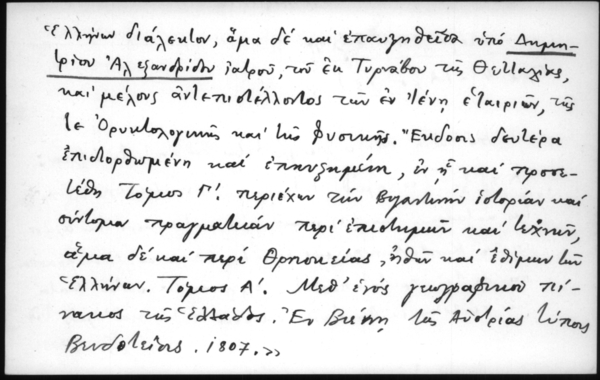 Ἑλλήνων διάλεκτον, ἅμα δέ καί ἐπαυξηθεῖσα ὑπό Δημη-
τρίου Ἀλεξανδρίδου ἰατροῦ, τοῦ ἐκ Τυρνάβου τῆς Θετταλίας,
καί μέλους ἀντεπιστέλλοντος τῶν ἐν Ἰένῃ ἑταιριῶν, τῆς
τε Ὀρυκτολογικῆς καί τῆς Φυσικῆς. Ἔκδοσις δευτέρα
ἐπιδιορθωμένη καί ἐπηυξημένη, ἐν ᾗ καί προσε-
τέθη Τόμος Γ'. περιέχων τήν Βυζαντινήν ἱστορίαν καί
σύντομα πραγματείαν περί ἐπιστημῶν καί τεχνῶν,
ἅμα δέ καί περί Θρησκείας, ἠθῶν καί ἐθίμων τῶν
Ἑλλήνων. Τόμος Α'. Μεθ' ἑνός γεωγραφικοῦ πί-
νακος τῆς Ἑλλάδος. Ἐν Βιέννῃ τῆς Αὐστρίας τύποις
Βενδοτείοις. 1807.»